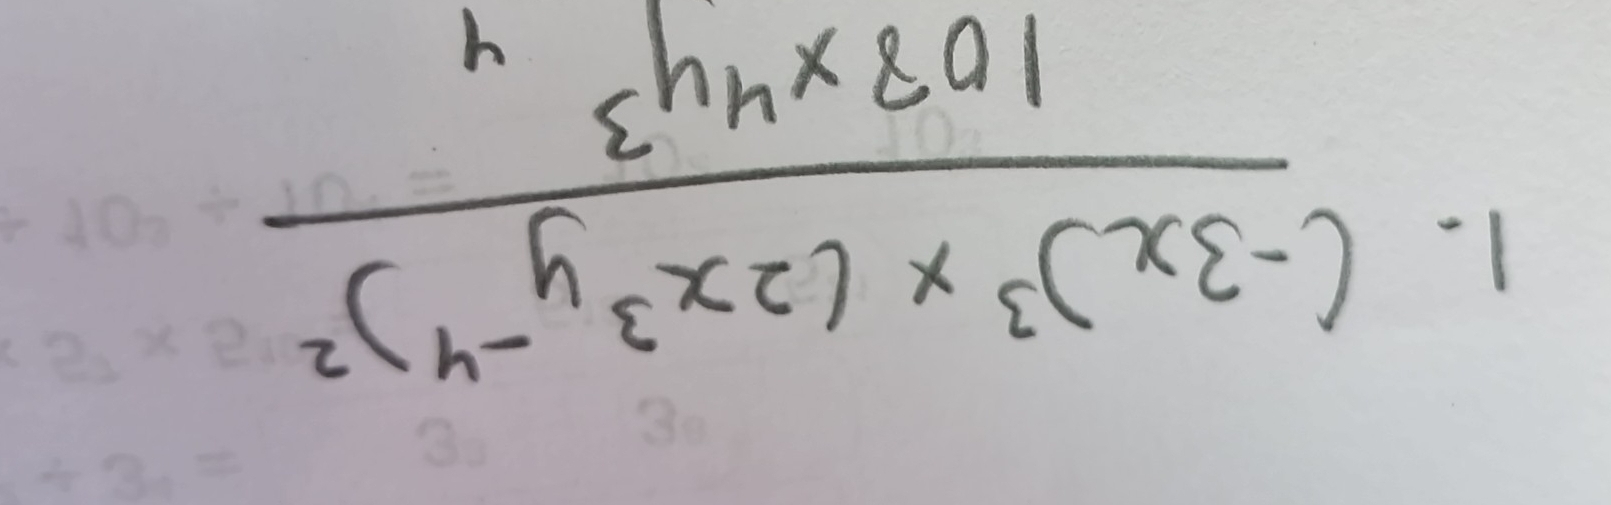 1. (-3x)³ × (2x³y⁻⁴)²
108x⁴y³ 4